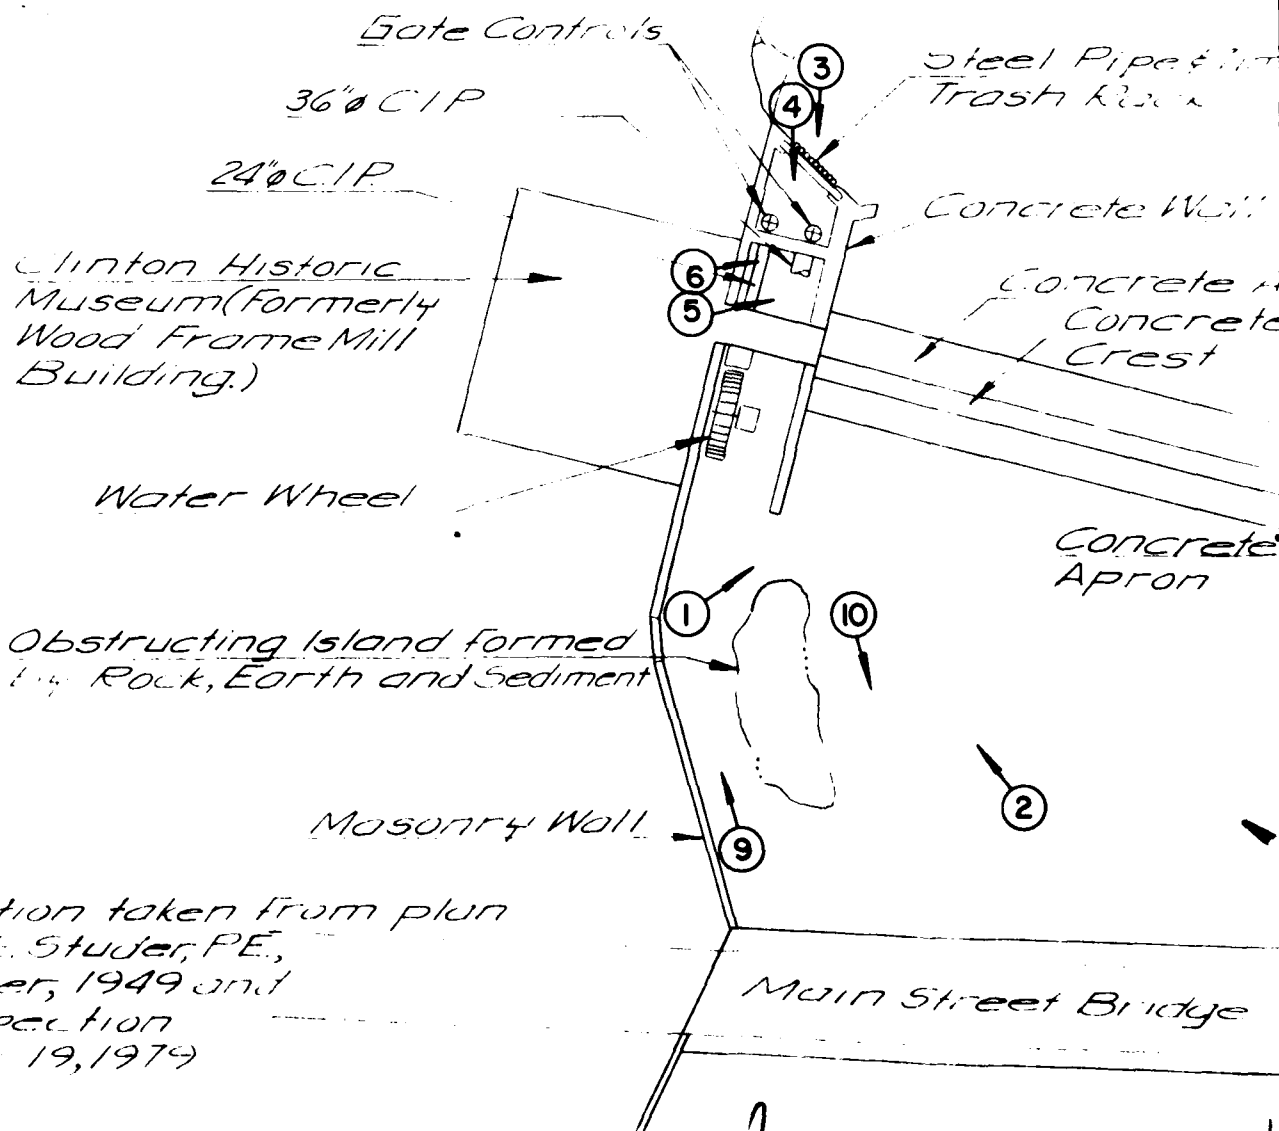 Gate Controls
3
Steel Pipe &
Trash Rack
36"ø C I P
4
24"ø C I P
Concrete Wall
Clinton Historic
Museum (Formerly
Wood Frame Mill
Building.)
6
5
Concrete
Concrete
Crest
Water Wheel
Concrete
Apron
1
10
Obstructing Island formed
by Rock, Earth and Sediment
2
Masonry Wall
9
tion taken from plan
Studer, P.E.,
er, 1949 and
pection
19, 1979
Main Street Bridge